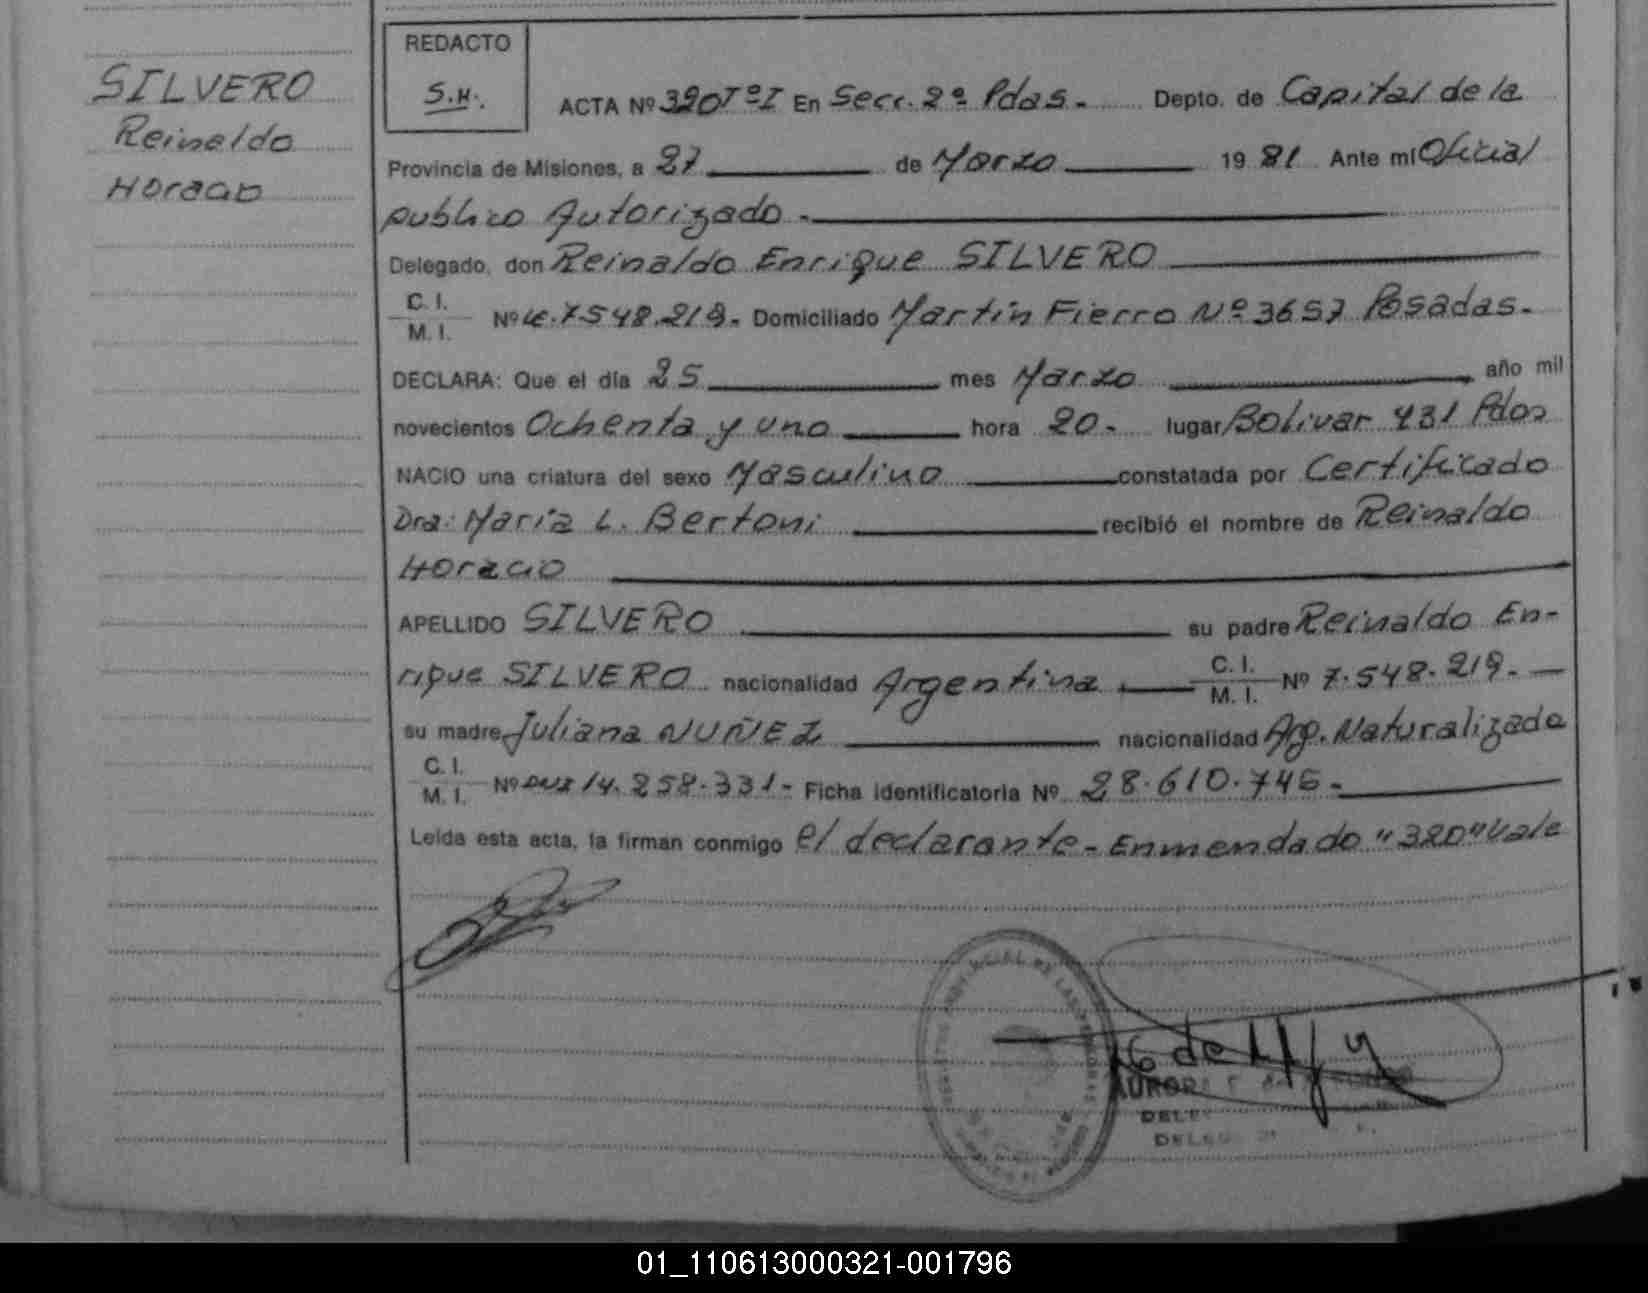 SILVERO
Reinaldo
Horacio
REDACTO
S.H.
ACTA Nº 320 TºI En Secr. 2º Pdas.- Depto. de Capital de la
Provincia de Misiones, a 27 de Marzo 19 81 Ante mí Oficial
publico Autorizado.-
Delegado, don Reinaldo Enrique SILVERO
C. I.
M. I. Nº LE. 7.548.219.- Domiciliado Martin Fierro Nº 3657 Posadas.-
DECLARA: Que el día 25 mes Marzo año mil
novecientos Ochenta y uno hora 20.- lugar Bolivar 431 Pdas
NACIO una criatura del sexo Masculino constatada por Certificado
Dra: María L. Bertoni recibió el nombre de Reinaldo
Horacio
APELLIDO SILVERO su padre Reinaldo En-
rique SILVERO nacionalidad Argentina C. I.
M. I. Nº 7.548.219.-
su madre Juliana NUÑEZ nacionalidad Arg. Naturalizada
C. I.
M. I. Nº 14.258.331.- Ficha identificatoria Nº 28.610.746.-
Leída esta acta, la firman conmigo el declarante.- Enmendado "320" Vale
AURORA
01_110613000321-001796